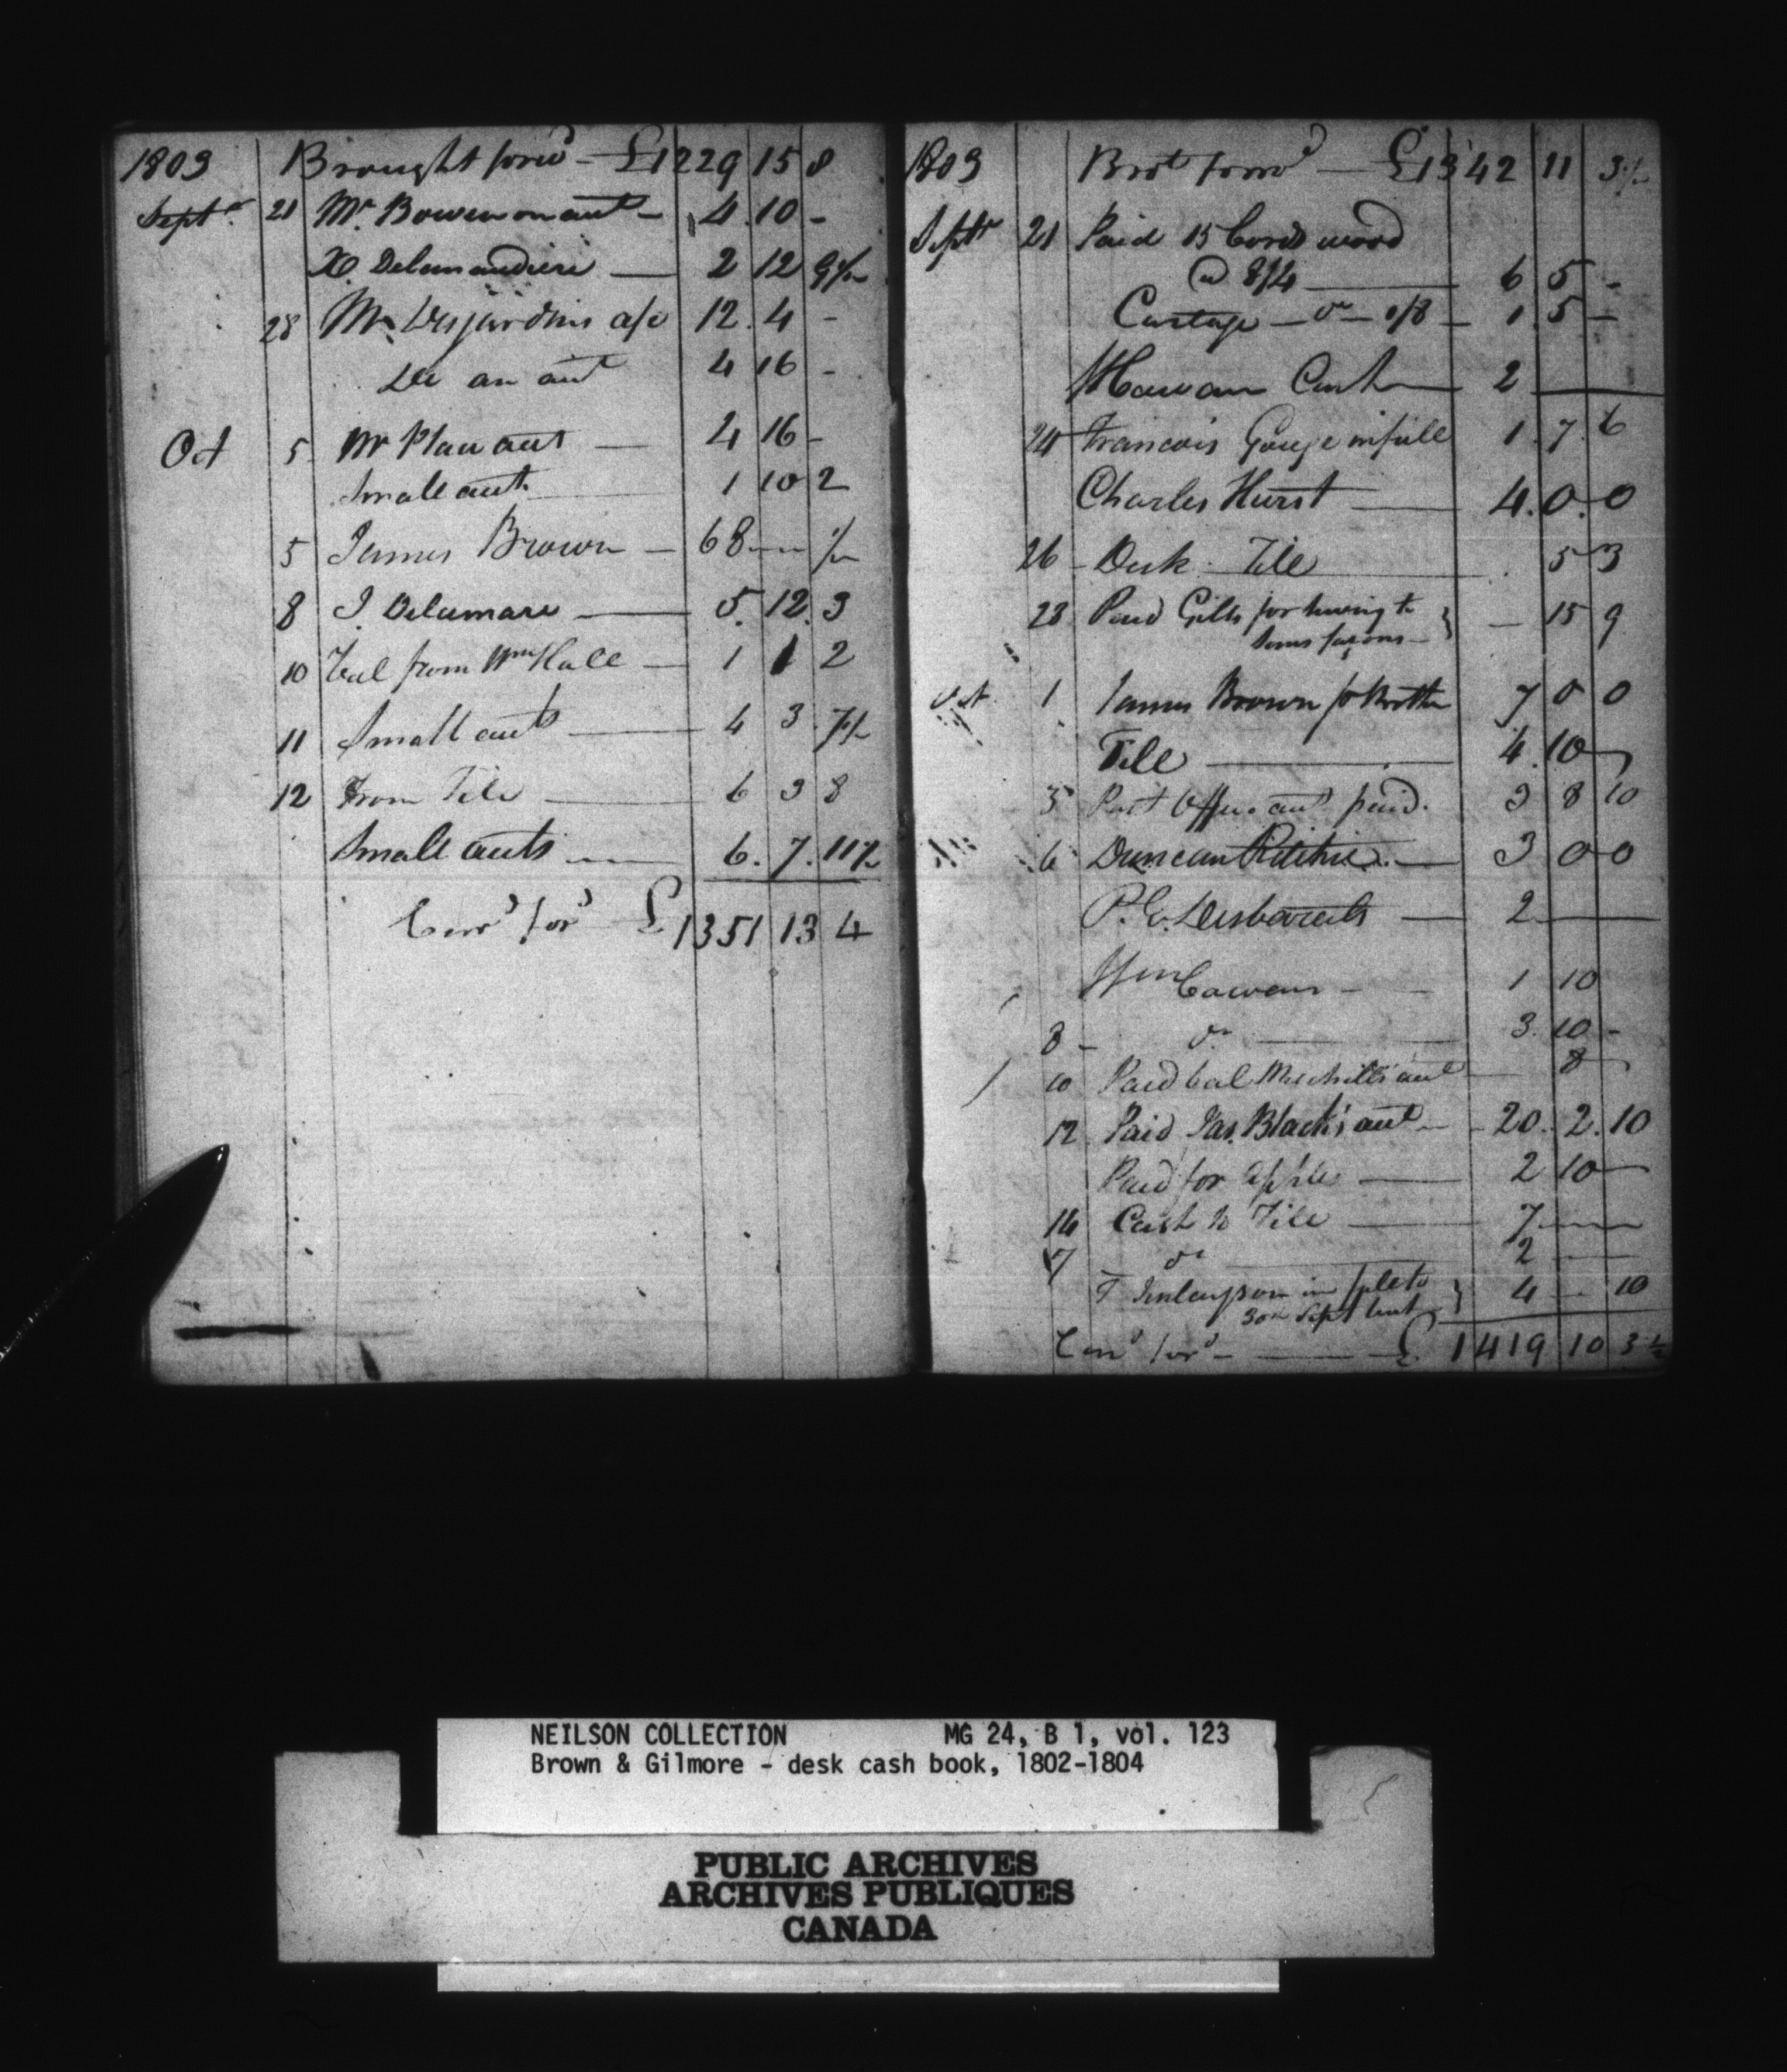 1803 Brought forwd — £1229 15 8
Septr 21 Mr. Bowen on acct — 4 10 -
X. Delamaudiere — 2 12 9½
28 Mr Desjardins a/c 12 4 -
De an acct 4 16 -
Oct 5 Mr Plau acct — 4 16 -
Small acct. 1 10 2
5 James Brown — 68 — ½
8 J. Delamare — 5. 12. 3
10 Bal from Wm Hall — 1 1 2
11 Small accts — 4 3 7½
12 From Till — 6 3 8
Small accts — 6. 7. 11½
Carrd forrd £ 1351 13 4
1803 Brot forrd — £1342 11 3½
Septr 21 Paid 15 Cords wood
@ 8/4 — 6 5 -
Cartage — do — 1/8 — 1 5 —
WCowan Cash — 2 —
24 Francois Gouge in full 1. 7. 6
Charles Hurst — 4. 0. 0
26 Desk Till — 5 3
28 Paid Gills for having to — 15 9
Oct 1 James Brown pr Brother 7 0 0
Till — 4 10 —
5 Post Office acct paid. 3 8 10
6 Duncan Ritchie — 3 0 0
P. E. Desbarats — 2 —
Wm Cowan — 1 10
8 - do — 3. 10 -
10 Paid bal acct — 8 —
12 Paid Jas. Black's acct — 20. 2. 10
Paid for apples — 2 10 —
14 Cash to Till — 7 —
17 do 2 —
F Finlayson in full to 4 — 10
30th Sept last
Carrd forrd — £ 1419 10 3½
NEILSON COLLECTION MG 24, B 1, vol. 123
Brown & Gilmore - desk cash book, 1802-1804
PUBLIC ARCHIVES
ARCHIVES PUBLIQUES
CANADA